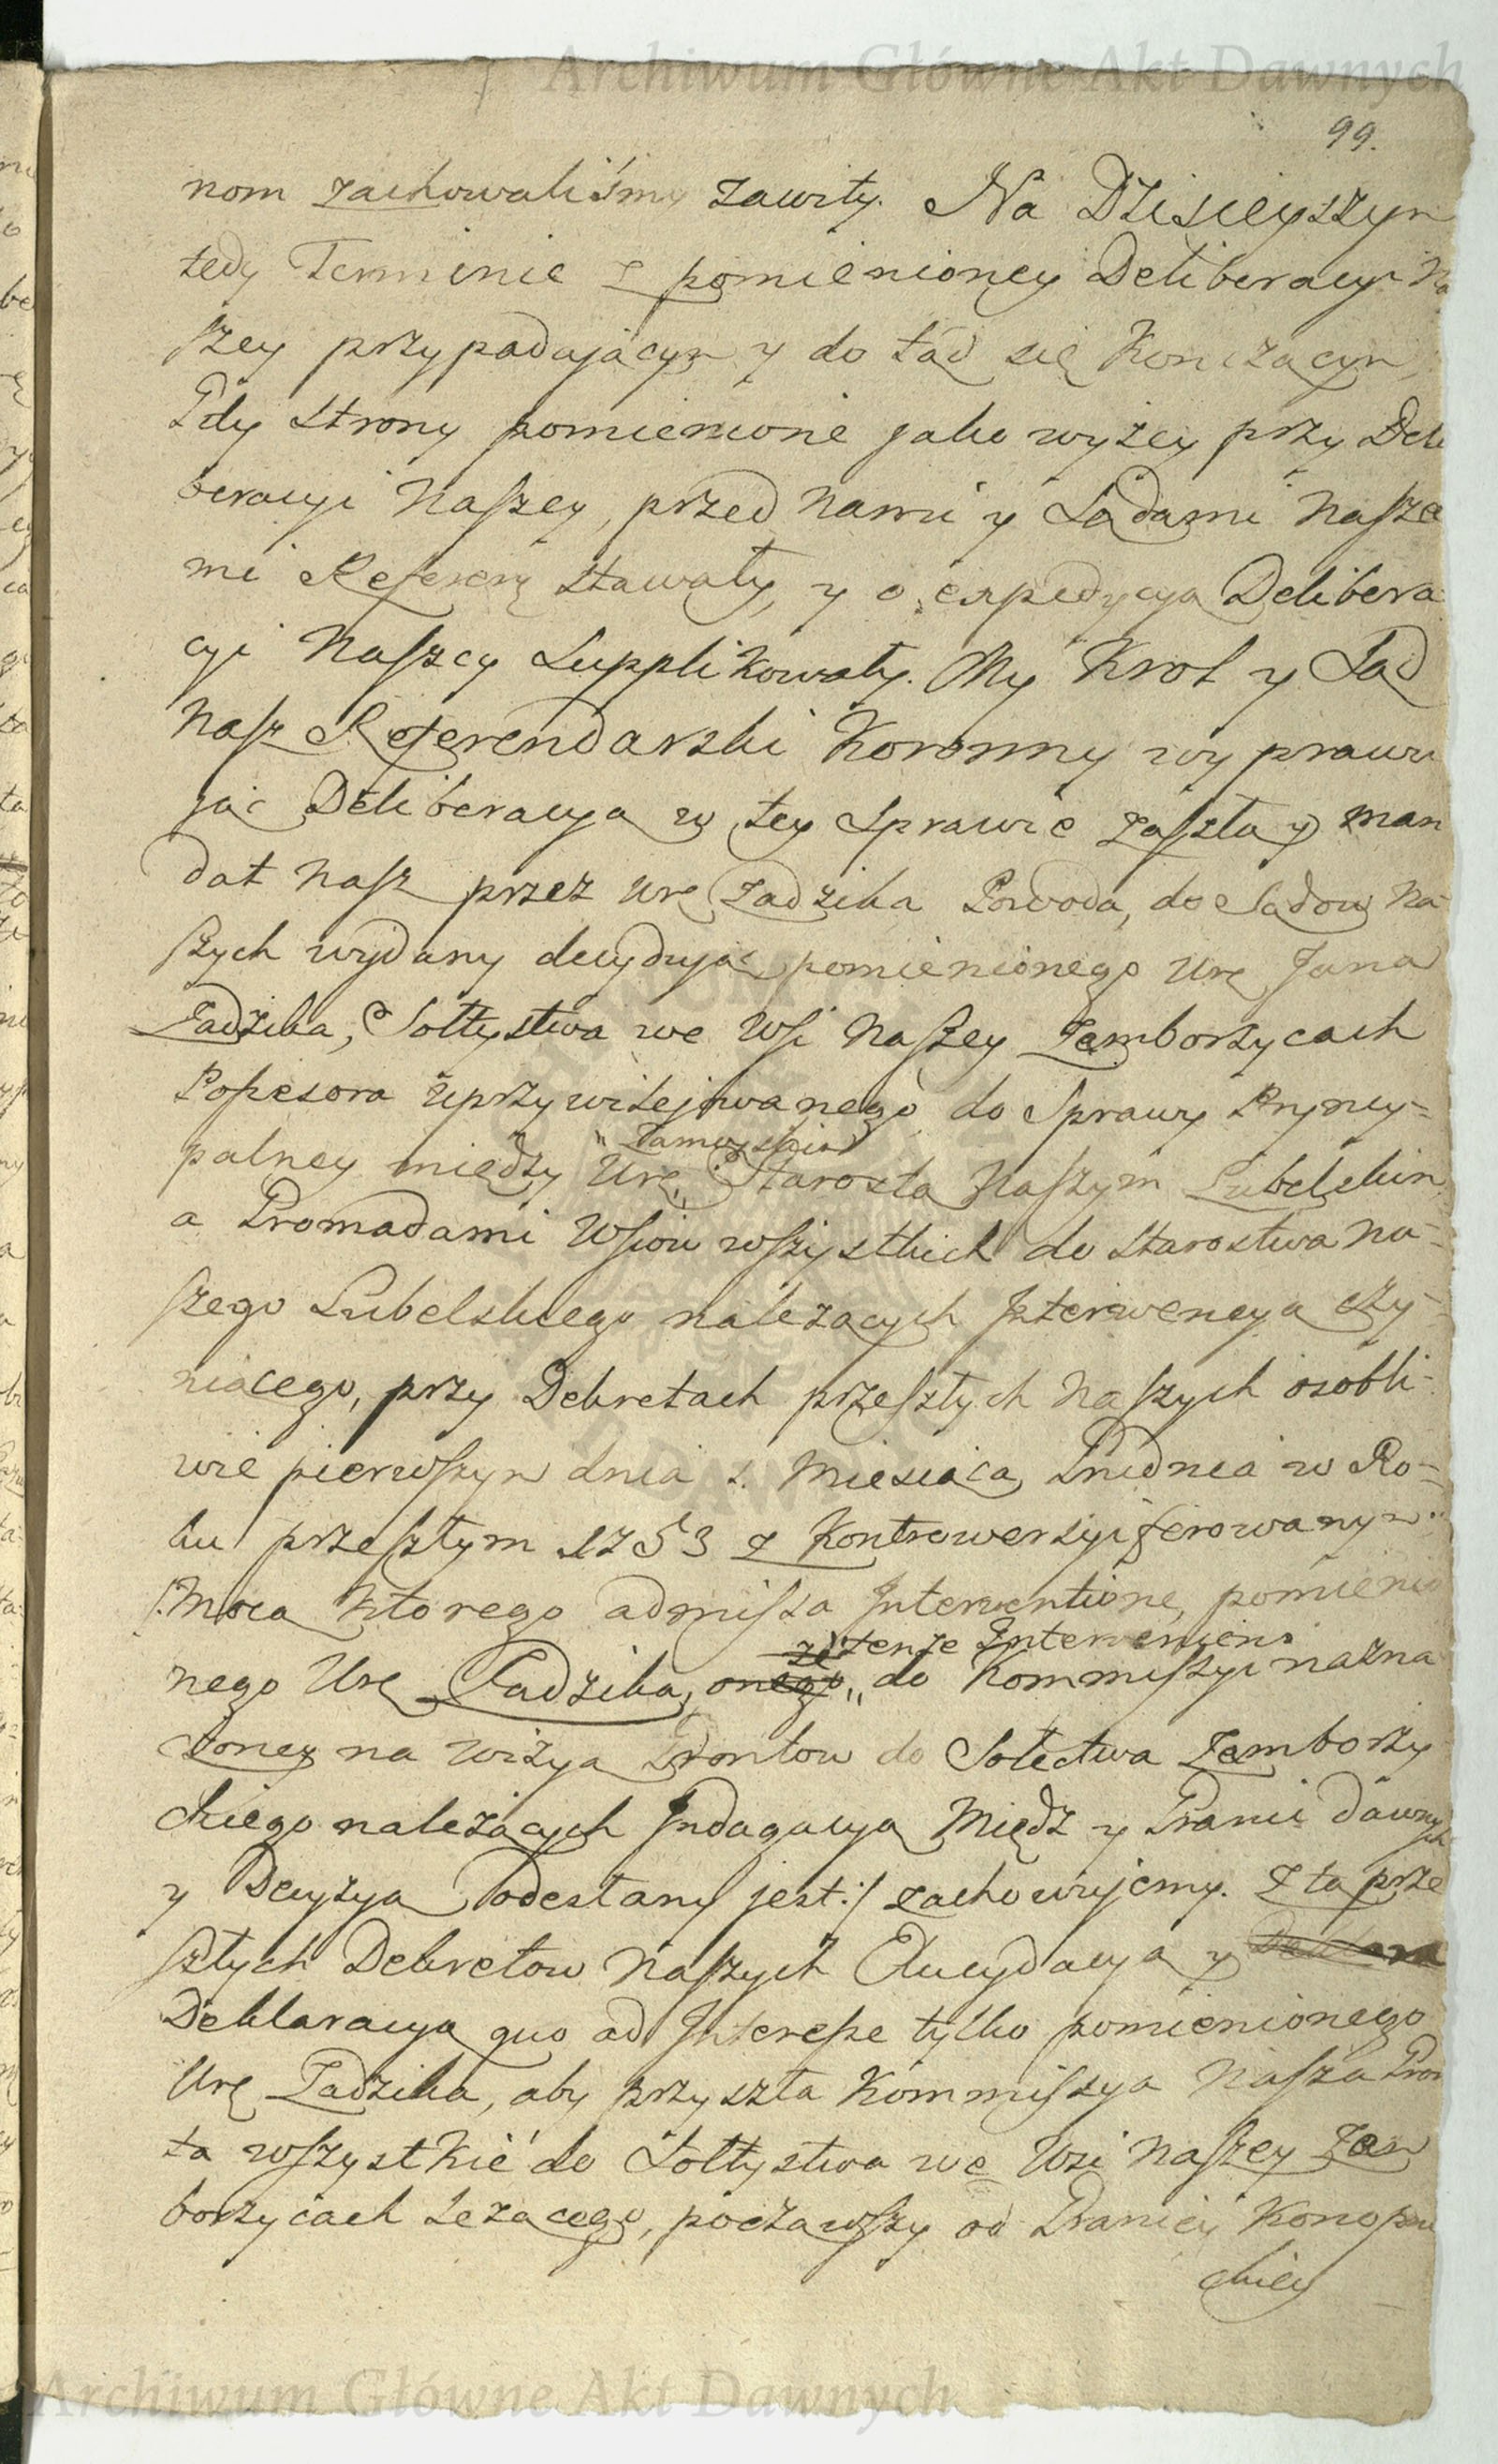 Archiwum Główne Akt Dawnych
99.
nom zachowaliśmy zawity. Na Dzisieyszym
tedy Terminie z pomienioney Deliberacyi Na
szey przypadającym y do tąd się Kończącym,
Gdy Strony pomienione jako wyżey przy Deli
beracyi Naszey, przed Nami y Sądami Nasze
mi Referen: stawały, y o expedycyą Delibera
cyi Naszey Supplikowały. My Krol y Sąd
Nasz Referendarski Koronny wyprawu
jąc Deliberacyą w tey Sprawie zaszłą y man
dat Nasz przez Ur: Ządzika Powoda, do Sądow Na
szych wydany decydując pomienionego Ur: Jana
Ządzika, Sołtystwa we Wsi Naszey Zemborzycach
Possesora uprzywilejowanego do Sprawy Pryncy-
palney między Ur: „Zamoyskim„ Starostą Naszym Lubelskim
a Gromadami Wsiow wszystkich do Starostwa Na-
szego Lubelskiego należących Interwencyą czy-
niącego, przy Dekretach przeszłych Naszych osobli-
wie pierwszym dnia 1. Miesiąca Grudnia w Ro-
ku przeszłym 1753 z Kontrowersyi ferowanym
/:Mocą ktorego admissa Interventione, pomienio
nego Ur: Ządzika, onego„ że tenże Interveniens do Kommissyi nazna
czoney na wizyą Grontow do Sołectwa Zemborzy
ckiego należących Indagacyą Miedz y Granic dawnych
y Decyzyą odesłany jest:/ zachowujemy. Z tą prze
szłych Dekretow Naszych Elucydacyą y
Deklaracyą quo ad Interesse tylko pomienionego
Ur: Ządzika, aby przyszła Kommissya Nasza Gron
ta wszystkie do Sołtystwa we Wsi Naszey Zem
borzycach leżącego, począwszy od Granicy Konopni
ckiey
Archiwum Główne Akt Dawnych